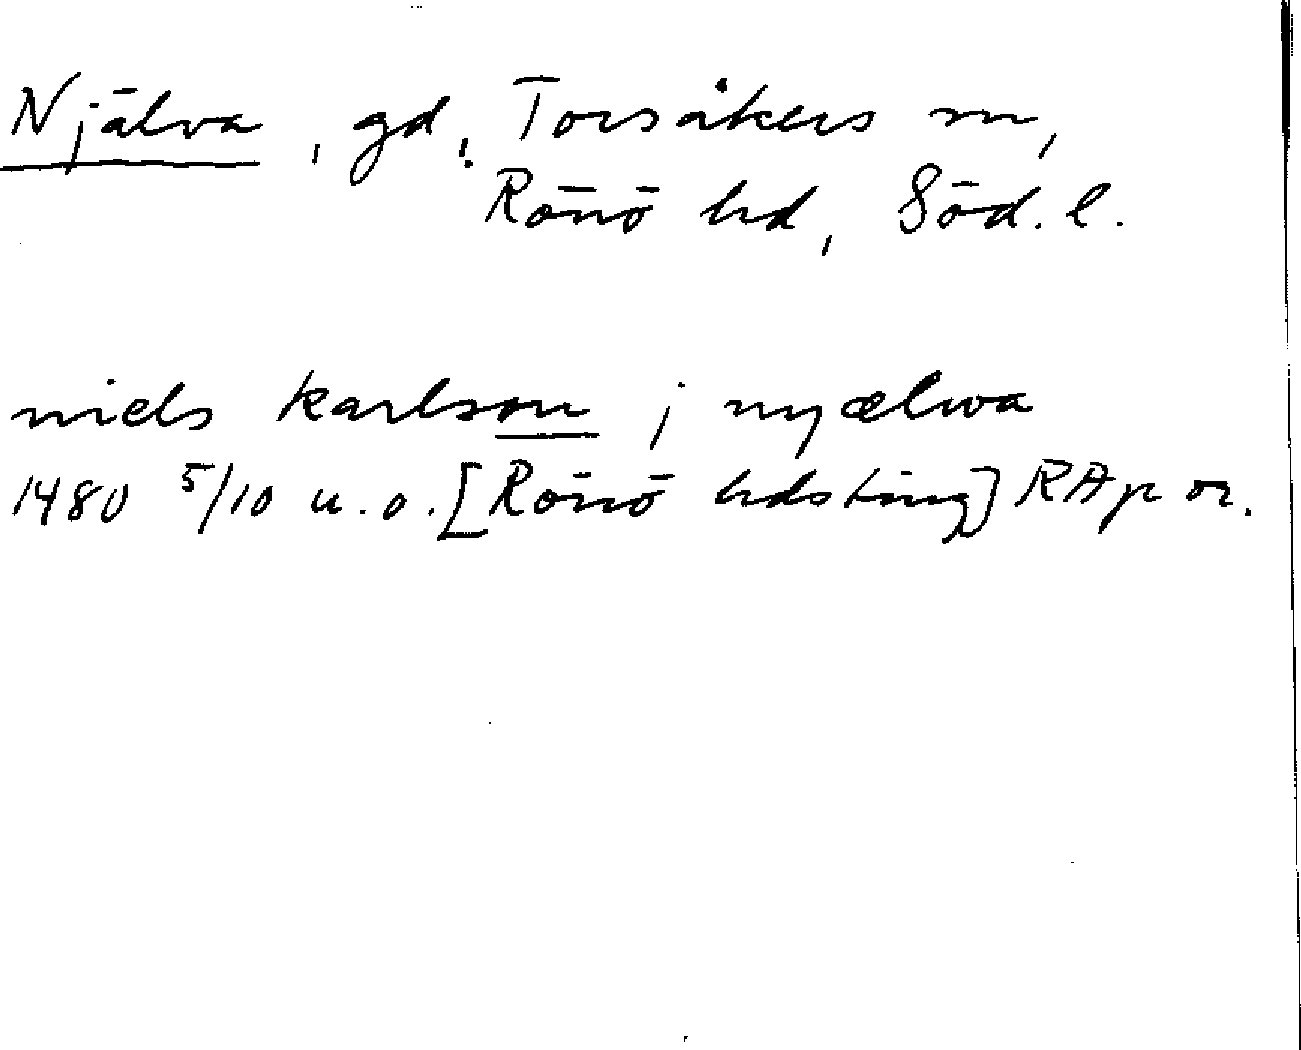 Njälva, gd, Torsåkers sn,
Rönö hd, Söd. l.
niels karlson j nyælwa
1480 5/10 u.o. [Rönö hdsting] RAp or.